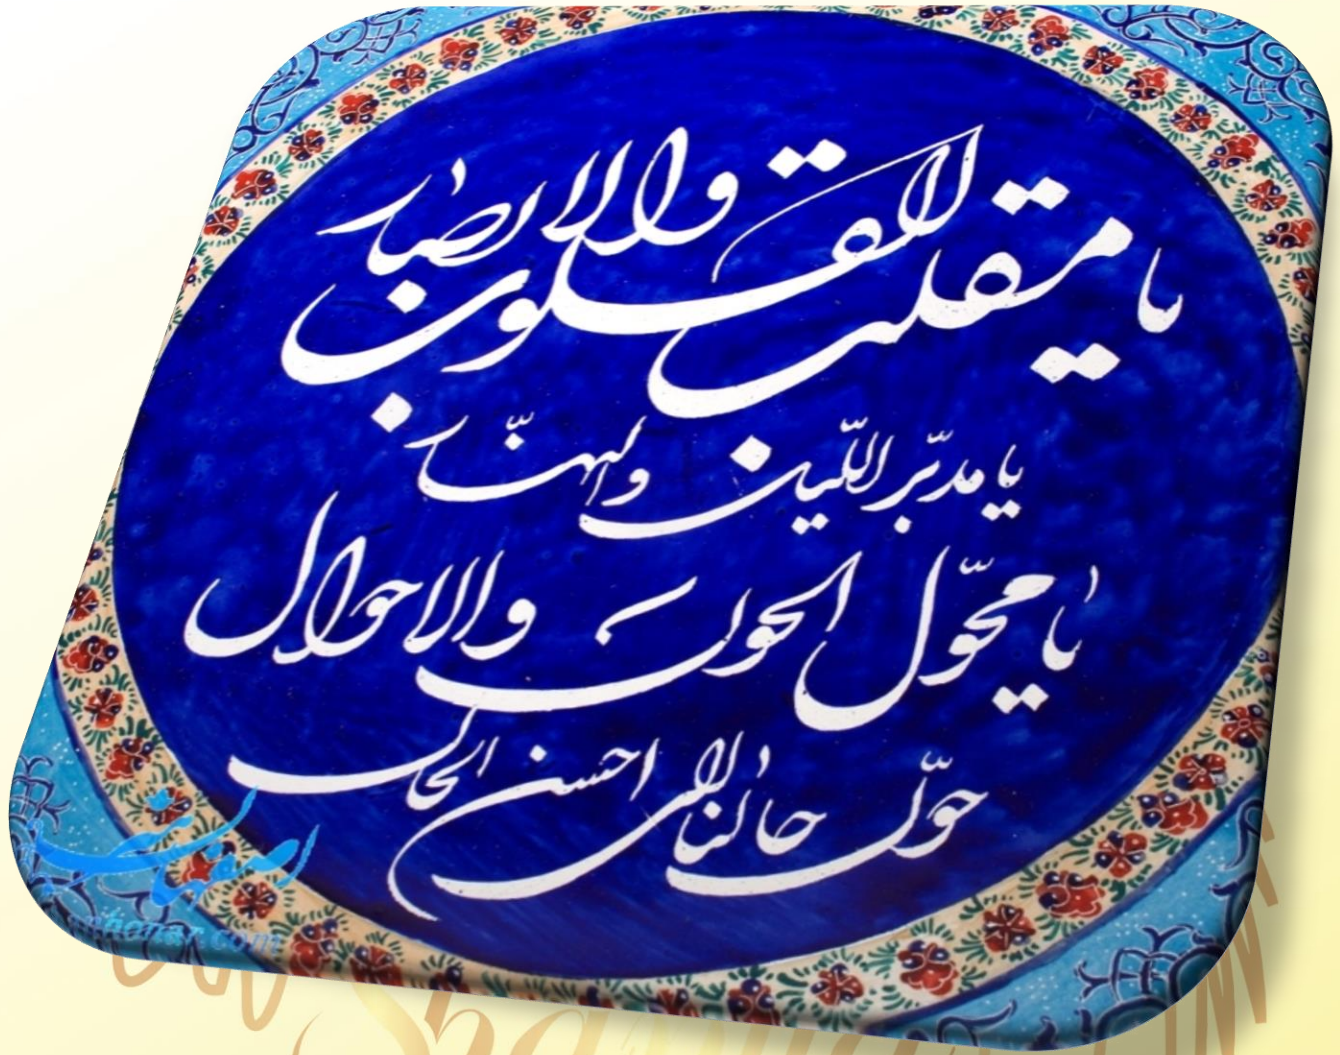 یا مقلب القلوب والابصار
یا مدبّر اللّیل والنهّار
یا محّول الحول والاحوال
حوّل حالنا الی احسن الحال
اصفهان هنر